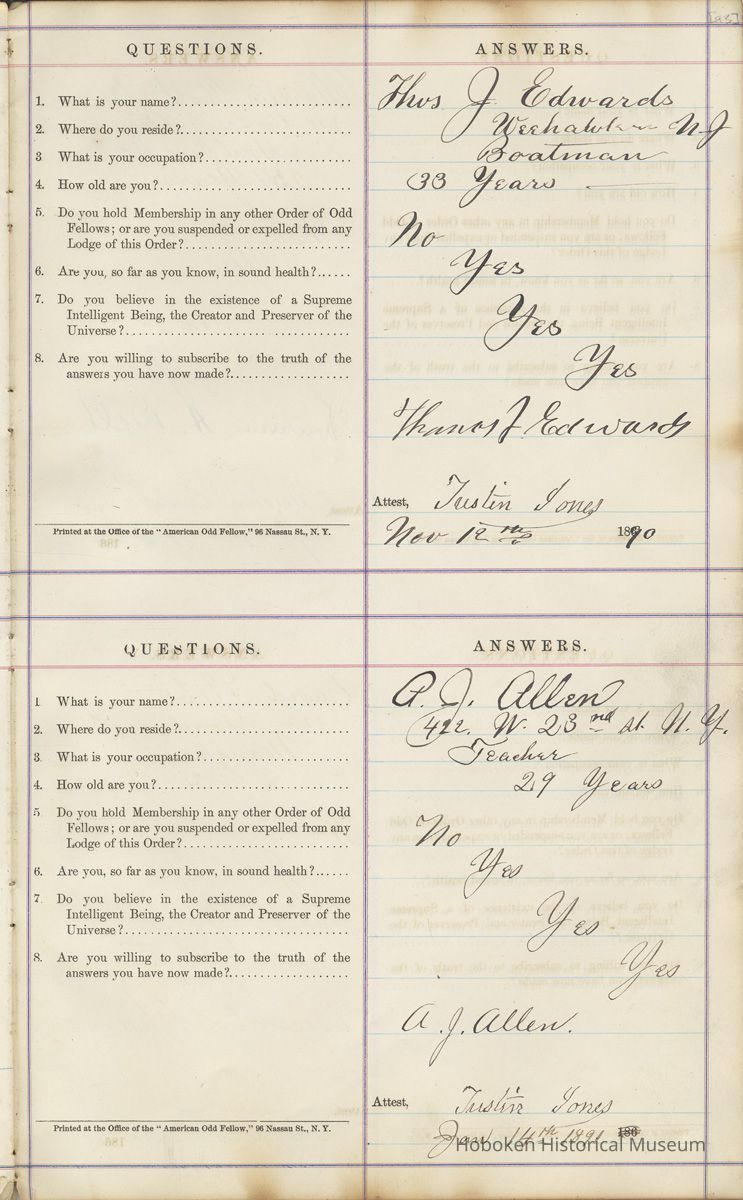 [95]
QUESTIONS.
ANSWERS.
1. What is your name?
Thos J Edwards
2. Where do you reside?
Weehawken N.J
3 What is your occupation?
Boatman
4. How old are you?
33 Years
5. Do you hold Membership in any other Order of Odd
Fellows; or are you suspended or expelled from any
Lodge of this Order?
No
6. Are you, so far as you know, in sound health?
Yes
7. Do you believe in the existence of a Supreme
Intelligent Being, the Creator and Preserver of the
Universe?
Yes
8. Are you willing to subscribe to the truth of the
answers you have now made?
Yes
Thomas J Edwards
Attest, Justin Jones
Nov 12th 1890
Printed at the Office of the "American Odd Fellow," 96 Nassau St., N. Y.
QUESTIONS.
ANSWERS.
1 What is your name?
A. J. Allen
2. Where do you reside?
422. W. 23nd st. N. Y.
3. What is your occupation?
Teacher
4. How old are you?
29 Years
5 Do you hold Membership in any other Order of Odd
Fellows; or are you suspended or expelled from any
Lodge of this Order?
No
6. Are you, so far as you know, in sound health?
Yes
7 Do you believe in the existence of a Supreme
Intelligent Being, the Creator and Preserver of the
Universe?
Yes
8. Are you willing to subscribe to the truth of the
answers you have now made?
Yes
A. J. Allen.
Attest, Justin Jones
Jan 14th 1891 186
Printed at the Office of the "American Odd Fellow," 96 Nassau St., N. Y.
Hoboken Historical Museum